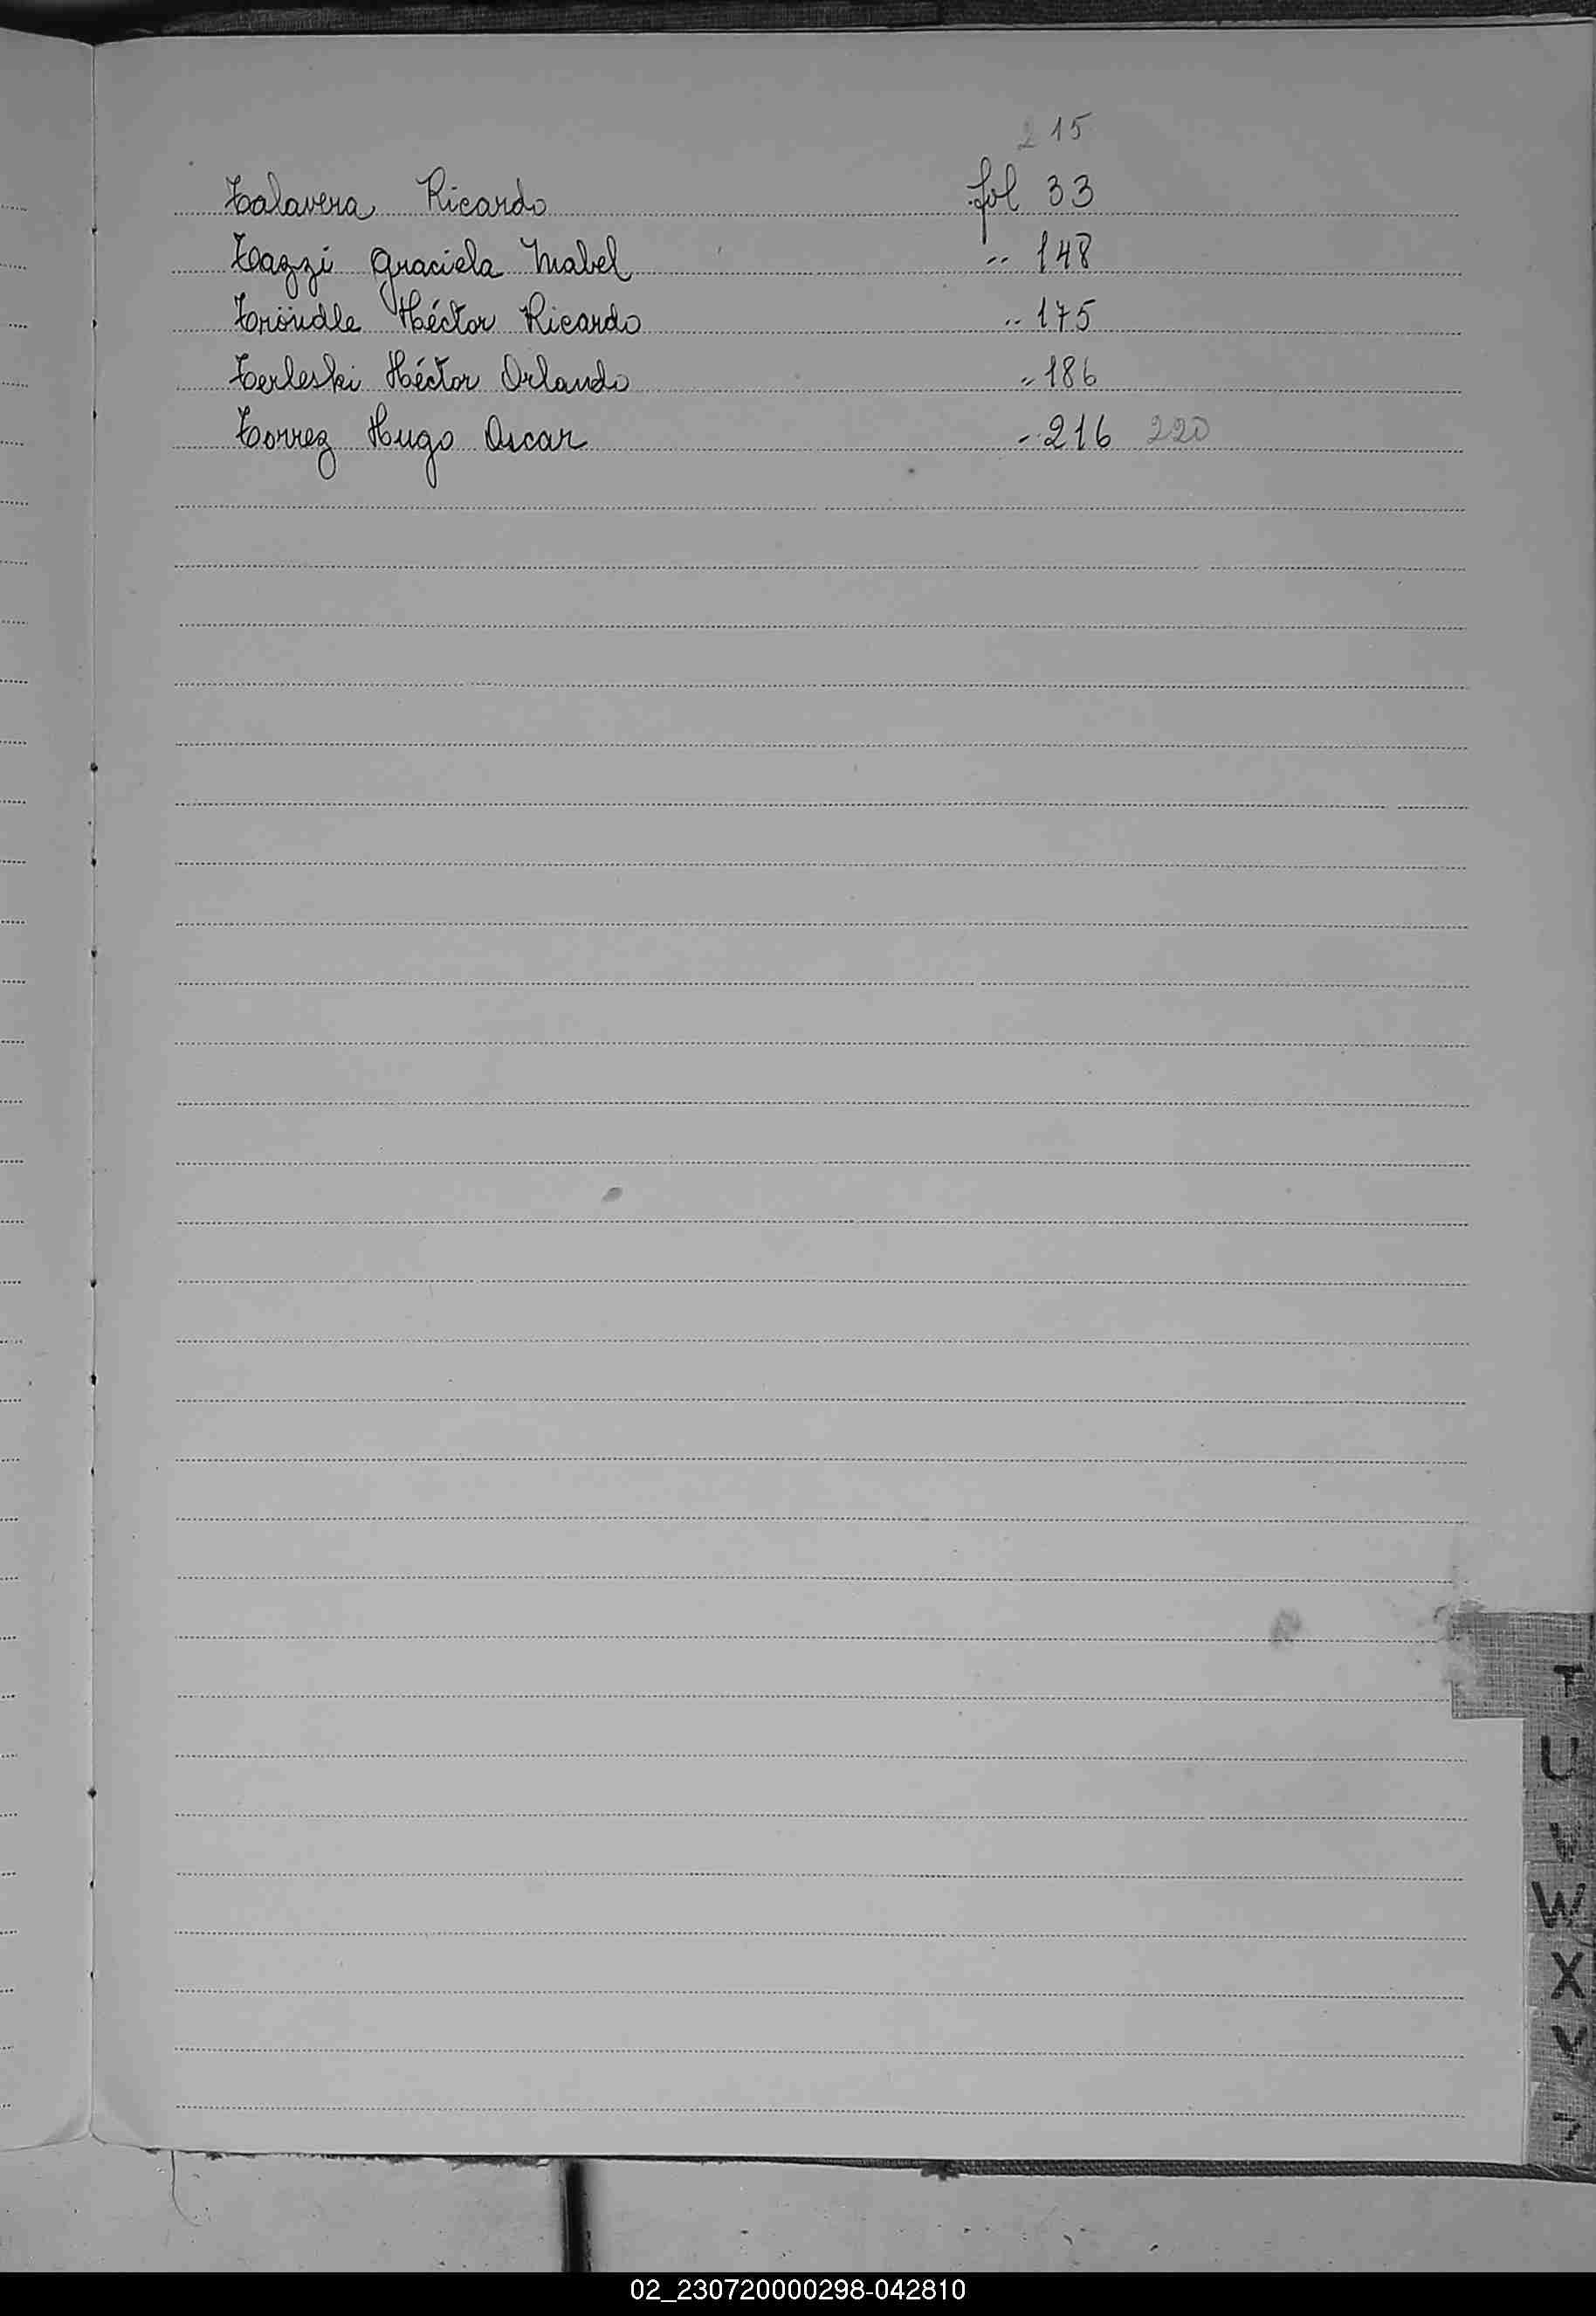 215
Talavera Ricardo fol 33
Tazzi Graciela Mabel " 148
Tröndle Héctor Ricardo " 175
Terleski Héctor Orlando " 186
Torrez Hugo Oscar " 216 220
T
U
V
W
X
02_230720000298-042810